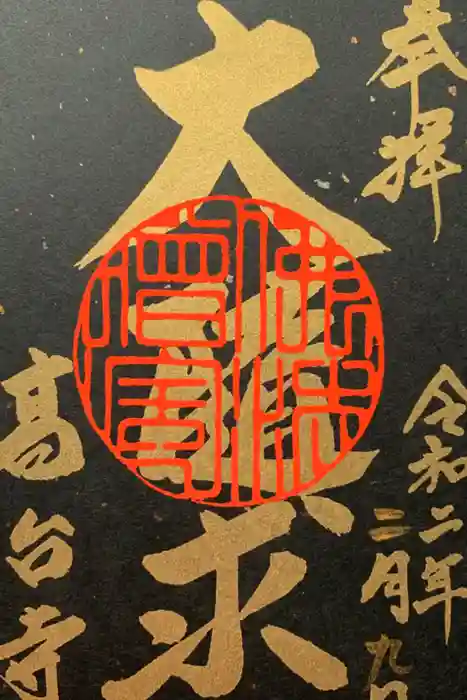 奉拝
令和二年
二月九日
大随求
佛法僧寶
高台寺